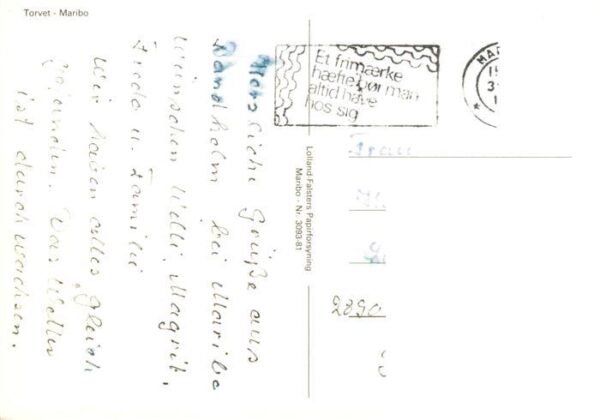 Torvet - Maribo
Et frimærke
hæfte bør man
altid have
hos sig
Lolland-Falsters Papirforsyning
Maribo - Nr. 3093-81
Herzliche Grüße aus
Bandholm bei Maribo
wünschen Willi, Magrit,
Frieda u. Familie
Wir haben alles gleich
gefunden. Das Wetter
ist durchwachsen.
Frau